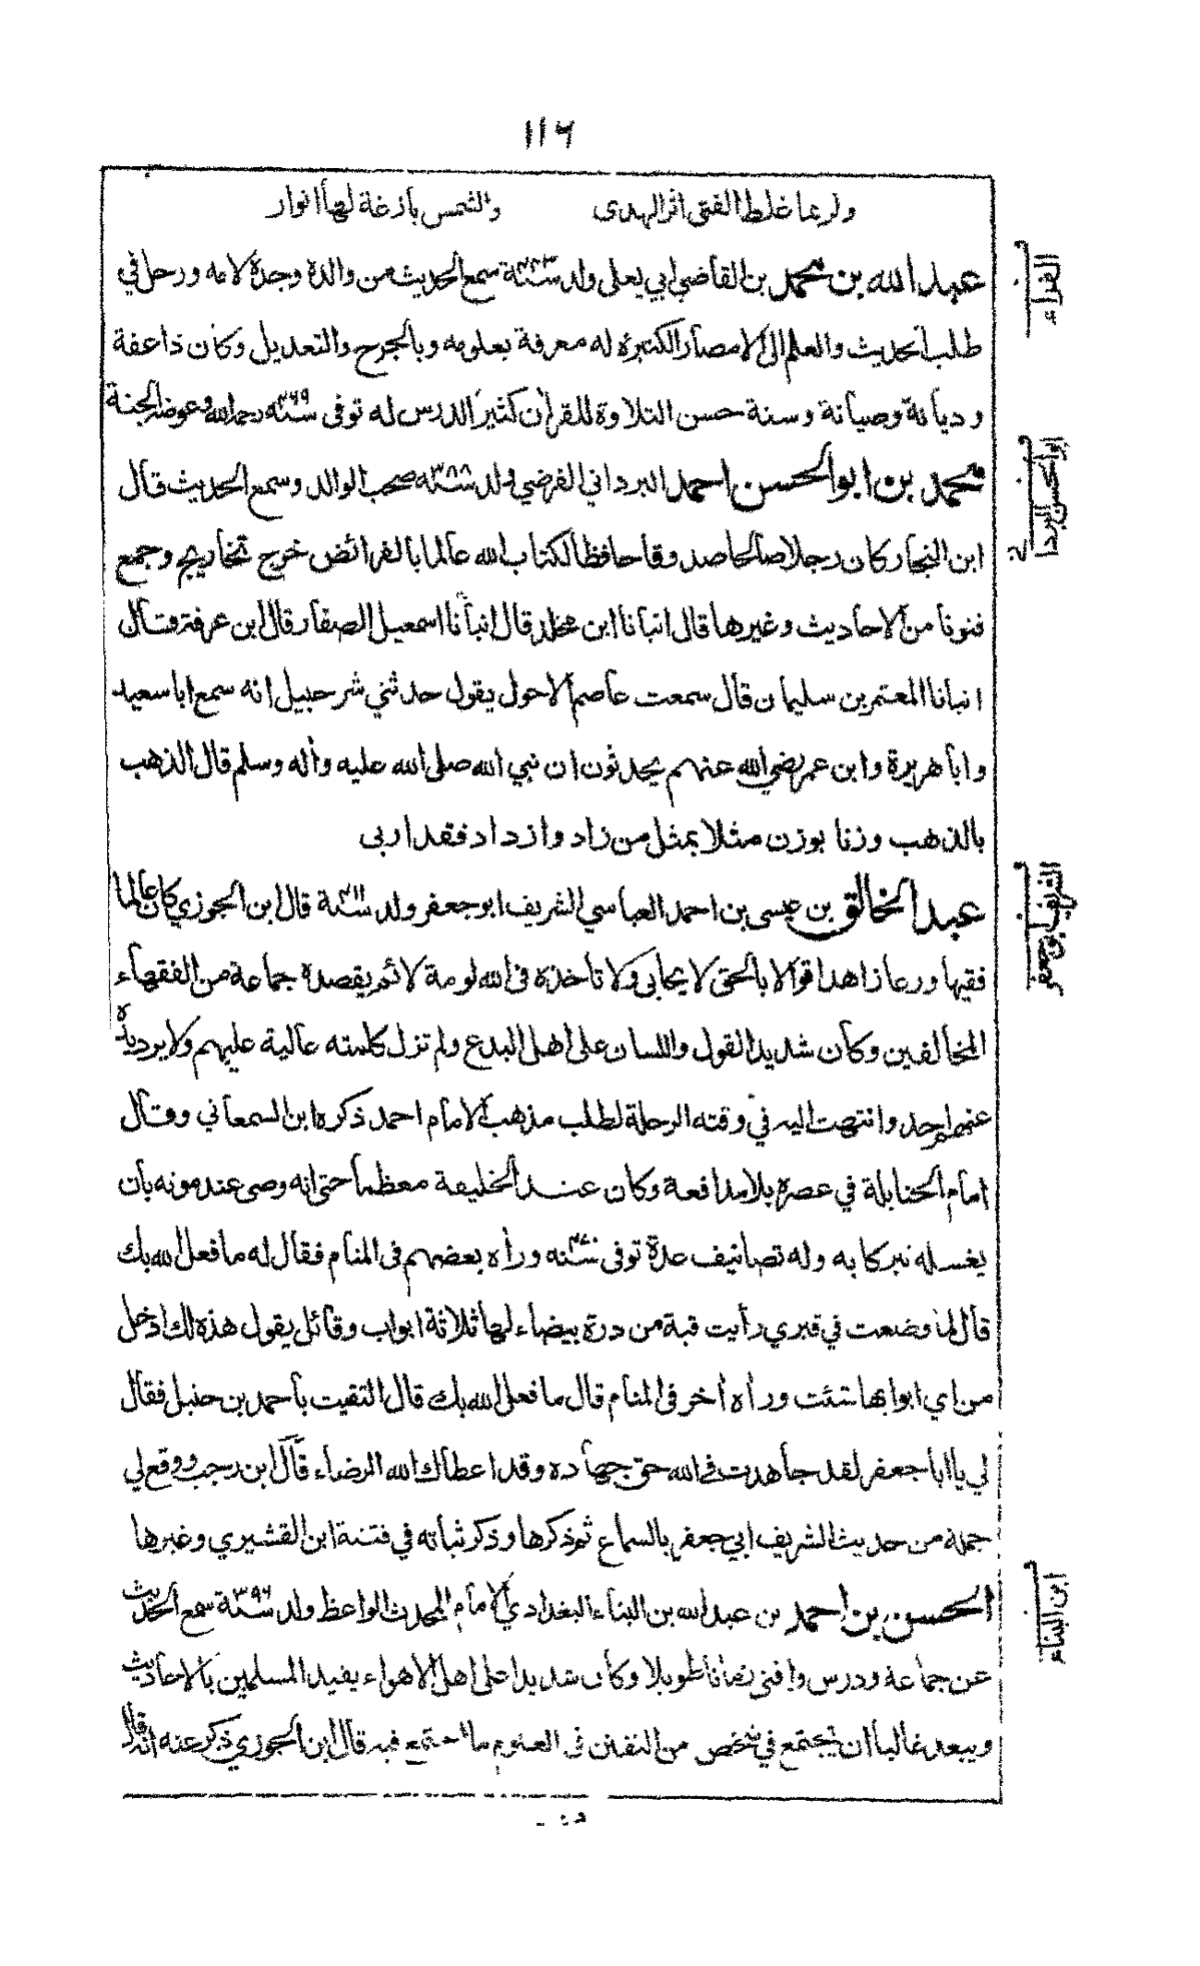 ١١٦
ولربما غلط الفتى اثر الهدى والشمس بازغة لها انوار
الفراء
عبد الله بن محمد بن القاضي ابي يعلى ولد سنة ٤٤٣ سمع الحديث من والده وجده لامه ورحل في
طلب الحديث والعلم الى الامصار الكثيرة له معرفة بعلومه وبالجرح والتعديل وكان ذا عفة
وديانة وصيانة وسنة حسن التلاوة للقران كثير الدرس له توفى سنة ٤٦٩ رحمه الله وعوضه الجنة
ابو الحسن البردانى
محمد بن ابو الحسن احمد البرداني الفرضي ولد سنة ٣٨٨ صحب الوالد وسمع الحديث قال
ابن النجار وكان رجلا صالحا صدوقا حافظا لكتاب الله عالما بالفرائض خرج تخاريج وجمع
فنونا من الاحاديث وغيرها قال انبانا ابن مخلد قال انبأنا اسمعيل الصفار قال ابن عرفة وقال
انبانا المعتمر بن سليمان قال سمعت عاصم الاحول يقول حدثني شرحبيل انه سمع ابا سعيد
وابا هريرة وابن عمر رضي الله عنهم يحدثون ان نبي الله صلى الله عليه وأله وسلم قال الذهب
بالذهب وزنا بوزن مثلا بمثل من زاد وازداد فقد اربى
الشريف ابو جعفر
عبد الخالق بن عيسى بن احمد العباسي الشريف ابو جعفر ولد سنة ٤١١ قال ابن الجوزي كان عالما
فقيها ورعا زاهدا قوالا بالحق لا يحابى ولا تاخذه فى الله لومة لائم يقصده جماعة من الفقهاء
المخالفين وكان شديد القول واللسان على اهل البدع ولم تزل كلمته عالية عليهم ولا يرد يده
عنهم احد وانتهت اليه في وقته الرحلة لطلب مذهب الامام احمد ذكره ابن السمعاني وقال
امام الحنابلة في عصره بلا مدافعة وكان عند الخليفة معظما حتى انه وصى عند موته بان
يغسله تبركا به وله تصانيف عدة توفى سنة ٤٧٠ ورأه بعضهم فى المنام فقال له ما فعل الله بك
قال لما وضعت في قبري رأيت قبة من درة بيضاء لها ثلاثة ابواب وقائل يقول هذه لك ادخل
من اي ابوابها شئت ورأه أخر فى المنام قال ما فعل الله بك قال التقيت باحمد بن حنبل فقال
لي يا ابا جعفر لقد جاهدت فى الله حق جهاده وقد اعطاك الله الرضاء قال ابن رجب ووقع لي
جملة من حديث الشريف ابي جعفر بالسماع ثم ذكرها وذكر ثباته في فتنة ابن القشيري وغيرها
ابن البناء
الحسن بن احمد بن عبد الله بن البناء البغدادي الامام المحدث الواعظ ولد سنة ٣٩٦ سمع الحديث
عن جماعة ودرس وافتى زمانا طويلا وكان شديدا على اهل الاهواء يفيد المسلمين بالاحاديث
ويبعد غالبا ان يجتمع في شخص من التفنن فى العلوم ما اجتمع فيه قال ابن الجوزي ذكر عنه انه قال